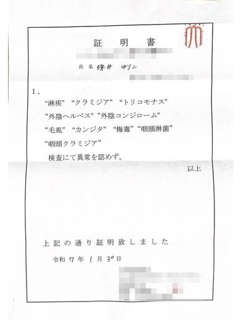 証明書
氏名
1、
“淋疾” “クラミジア” “トリコモナス”
“外陰ヘルペス” “外陰コンジローム”
“毛虱” “カンジタ” “梅毒” “咽頭淋菌”
“咽頭クラミジア”
検査にて異常を認めず。
以上
上記の通り証明致しました
令和7年1月30日